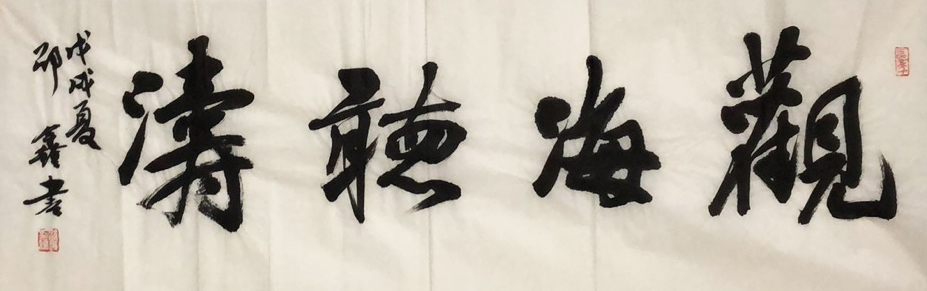 觀海聽濤
戊戌夏
邵鑫書